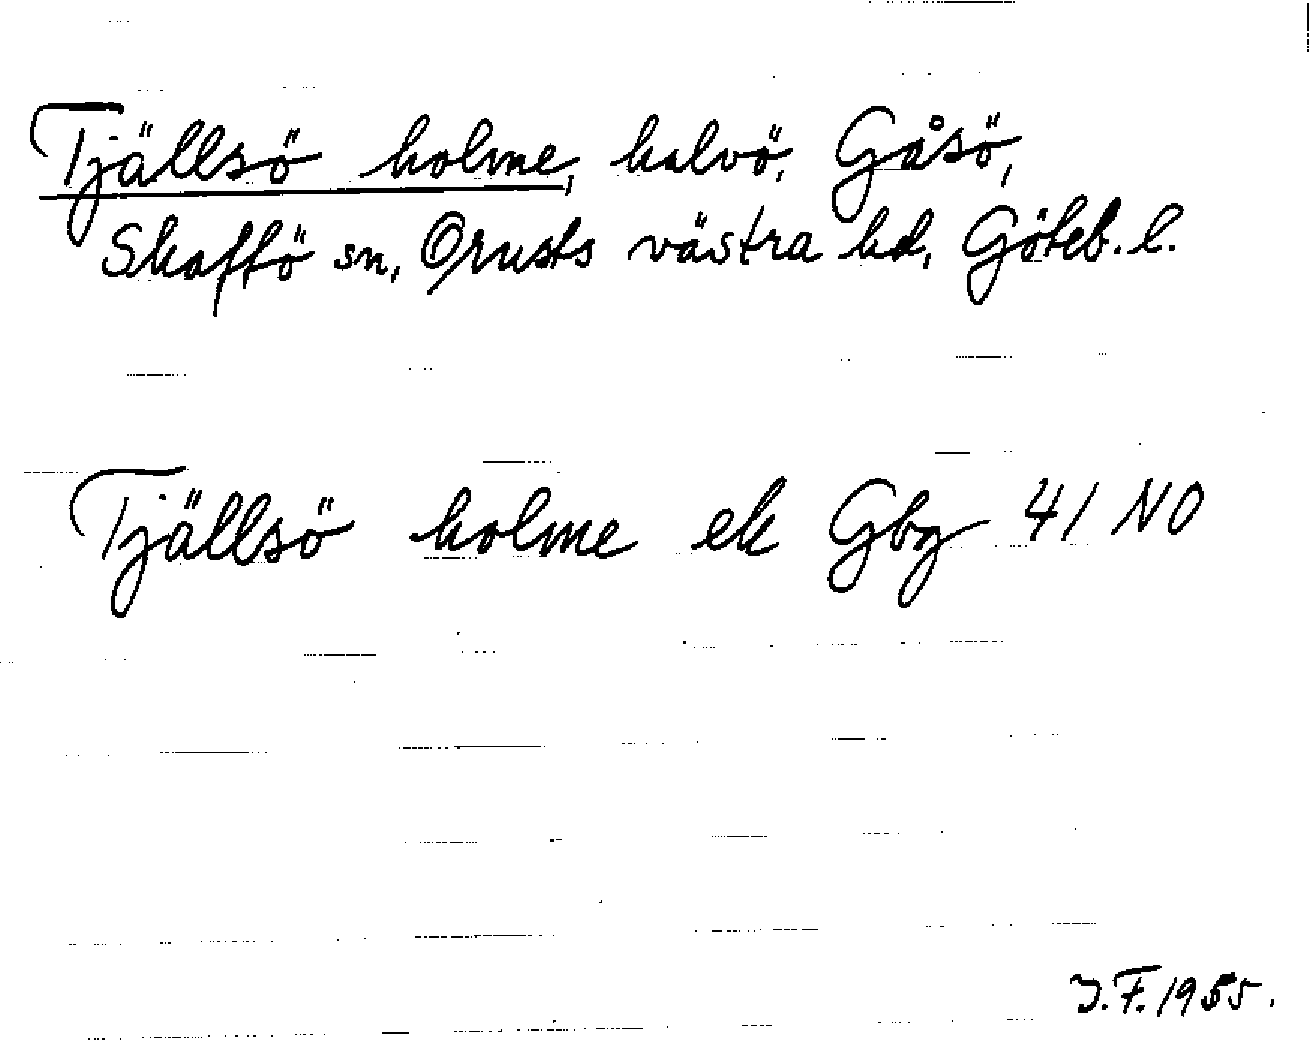 Tjällsö holme, halvö, Gåsö,
Skaftö sn, Orusts västra hd, Göteb. l.
Tjällsö holme ek Gbg 41 NO
J.F. 1955.